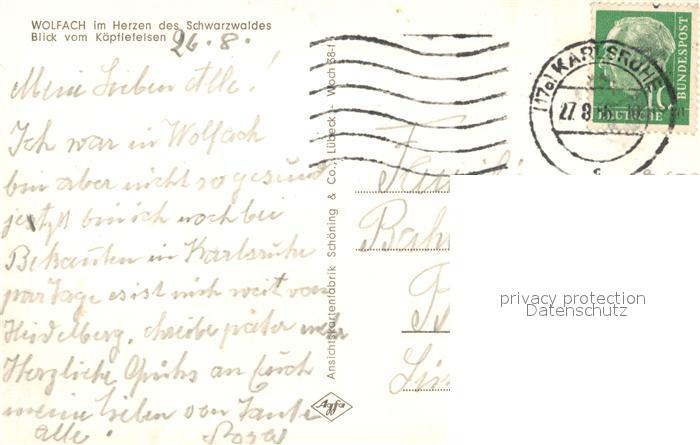 WOLFACH im Herzen des Schwarzwaldes
Blick vom Käpflefelsen
26. 8.
Meine Lieben Alle!
Ich war in Wolfach
bin aber nicht so gesund
jetzt bin ich noch bei
Bekanten in Karlsruhe
par Tage es ist nich weit von
Heidelberg, schreibe später mehr
Herzliche Grühs an Euch
meine Lieben von Tante
alle. Rosa
Ansichtskartenfabrik Schöning & Co., Lübeck - Wolch 58-f
Agfa
(17a) KARLSRUHE
27. 8.
c
DEUTSCHE
BUNDESPOST
10
Fami
Bah
privacy protection
Datenschutz